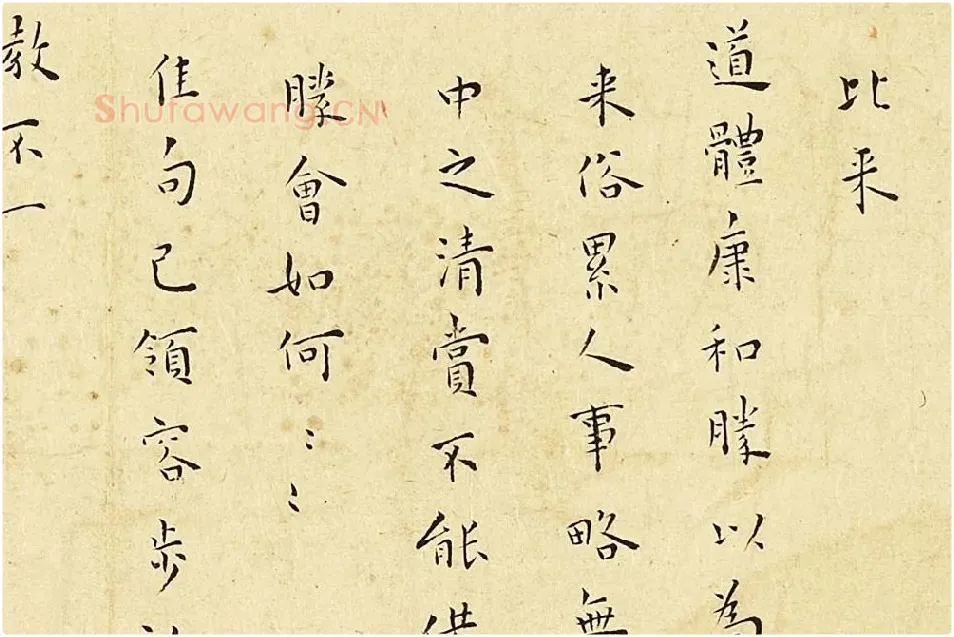 比来
道體康和勝以為
来俗累人事略無
中之清賞不能偕
勝會如何〻〻
佳句已領容步
教不一
Shufawang.CN